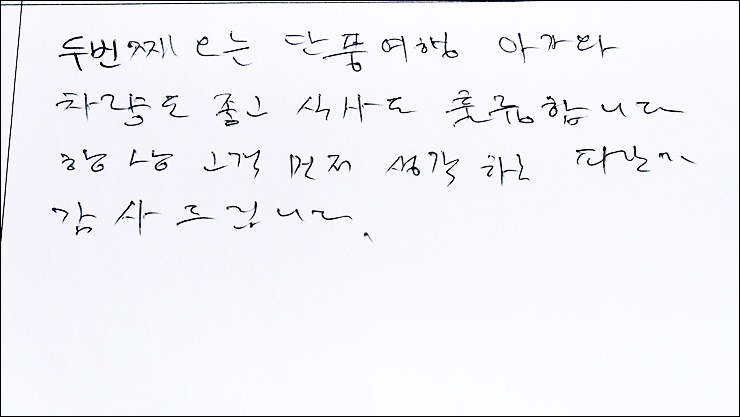 두번째 오는 단풍여행
차량도 좋고 식사도 훌륭합니다
항상 고객 먼저 생각하는
감사드립니다.